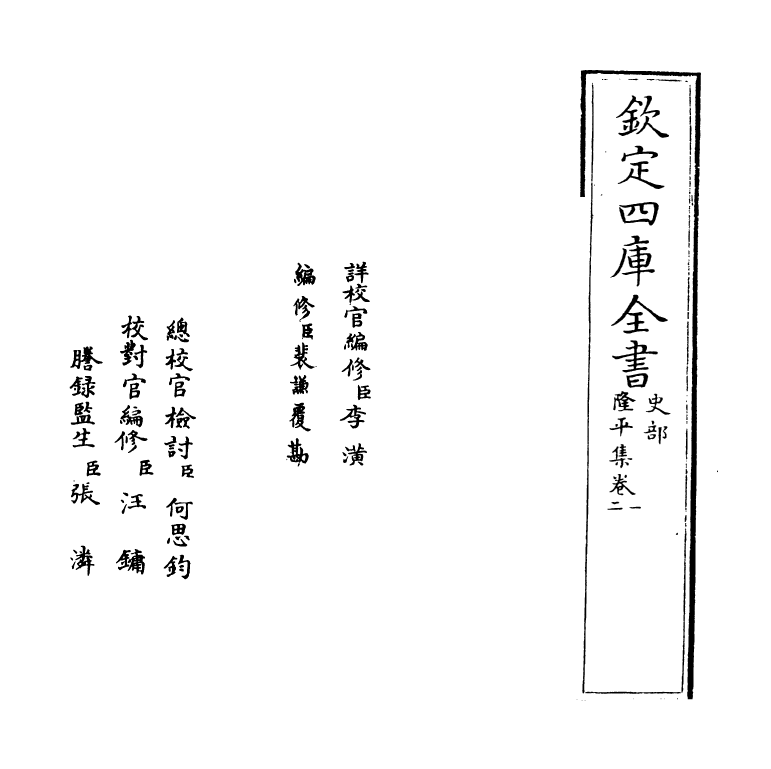 欽定四庫全書
史部
隆平集卷一
二
詳校官編修臣李潢
編修臣裴謙覆勘
總校官檢討臣何思鈞
校對官編修臣汪鏞
謄録監生臣張潾